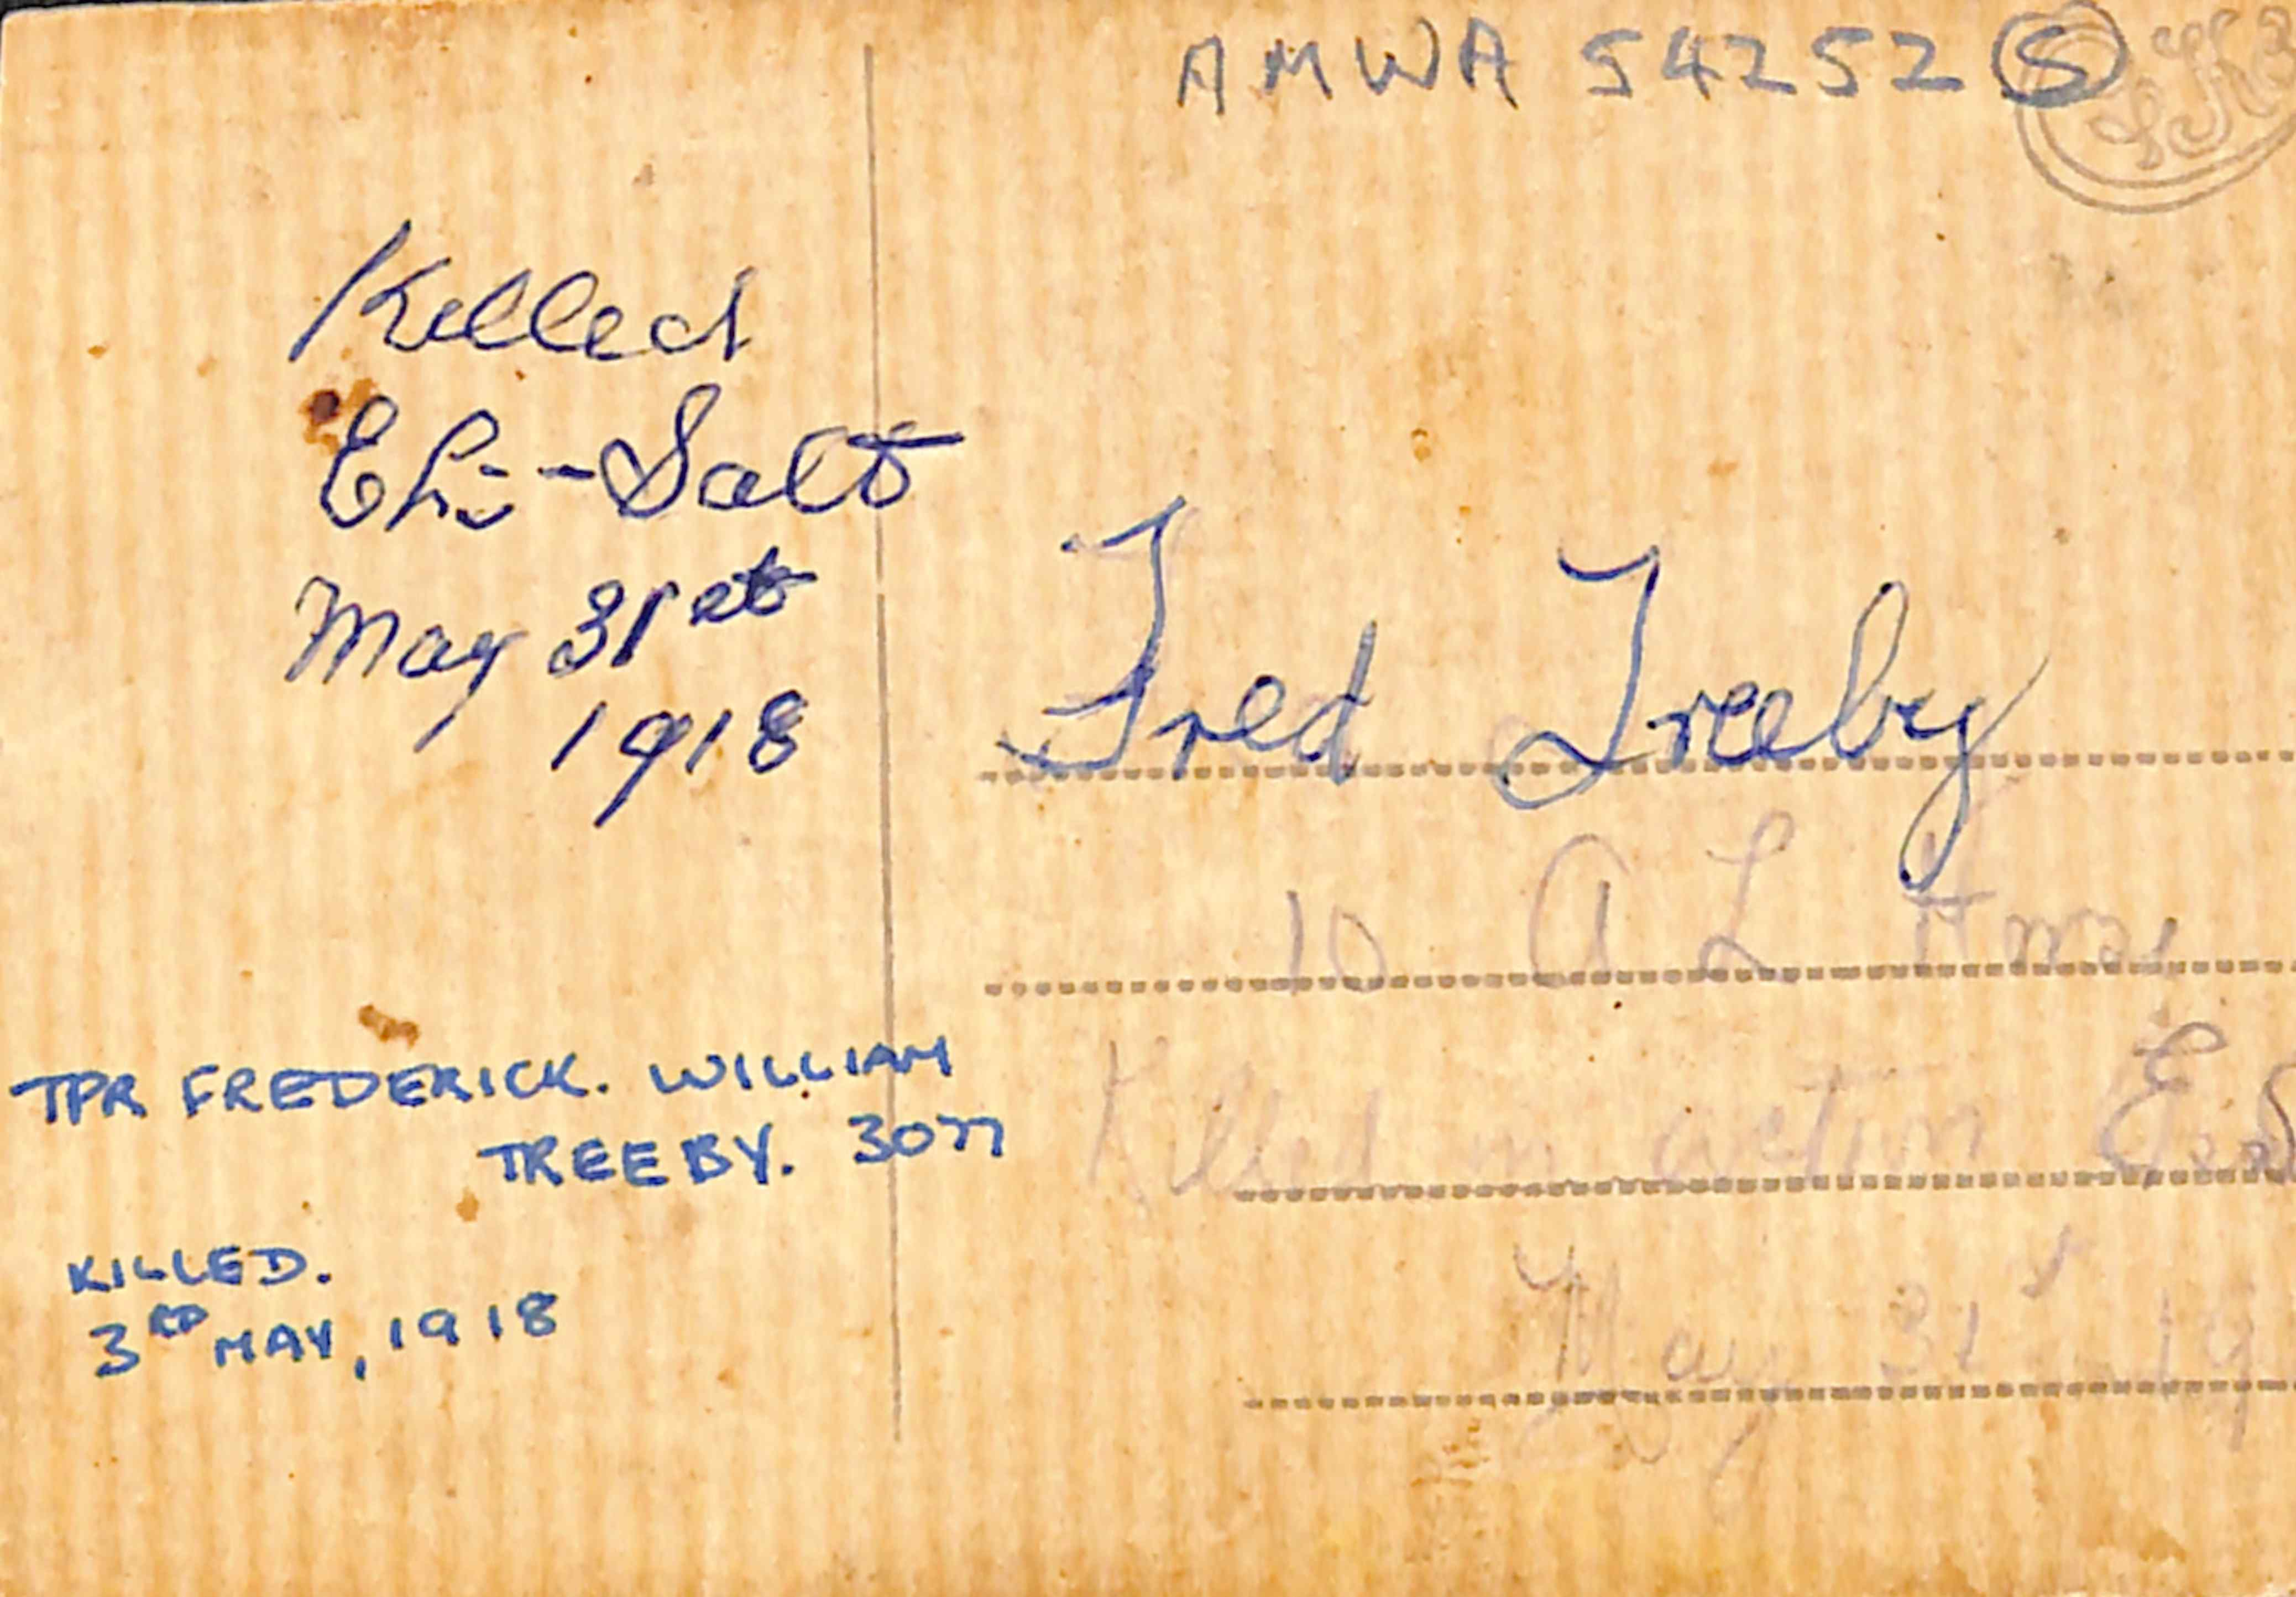 AMWA 54252 S
Killed
Es-Salt
May 31st
1918
Fred Treeby
10 A L Horse
Killed in action Es
May 31st 19
TPR FREDERICK. WILLIAM
TREEBY. 3077
KILLED.
3RD MAY, 1918